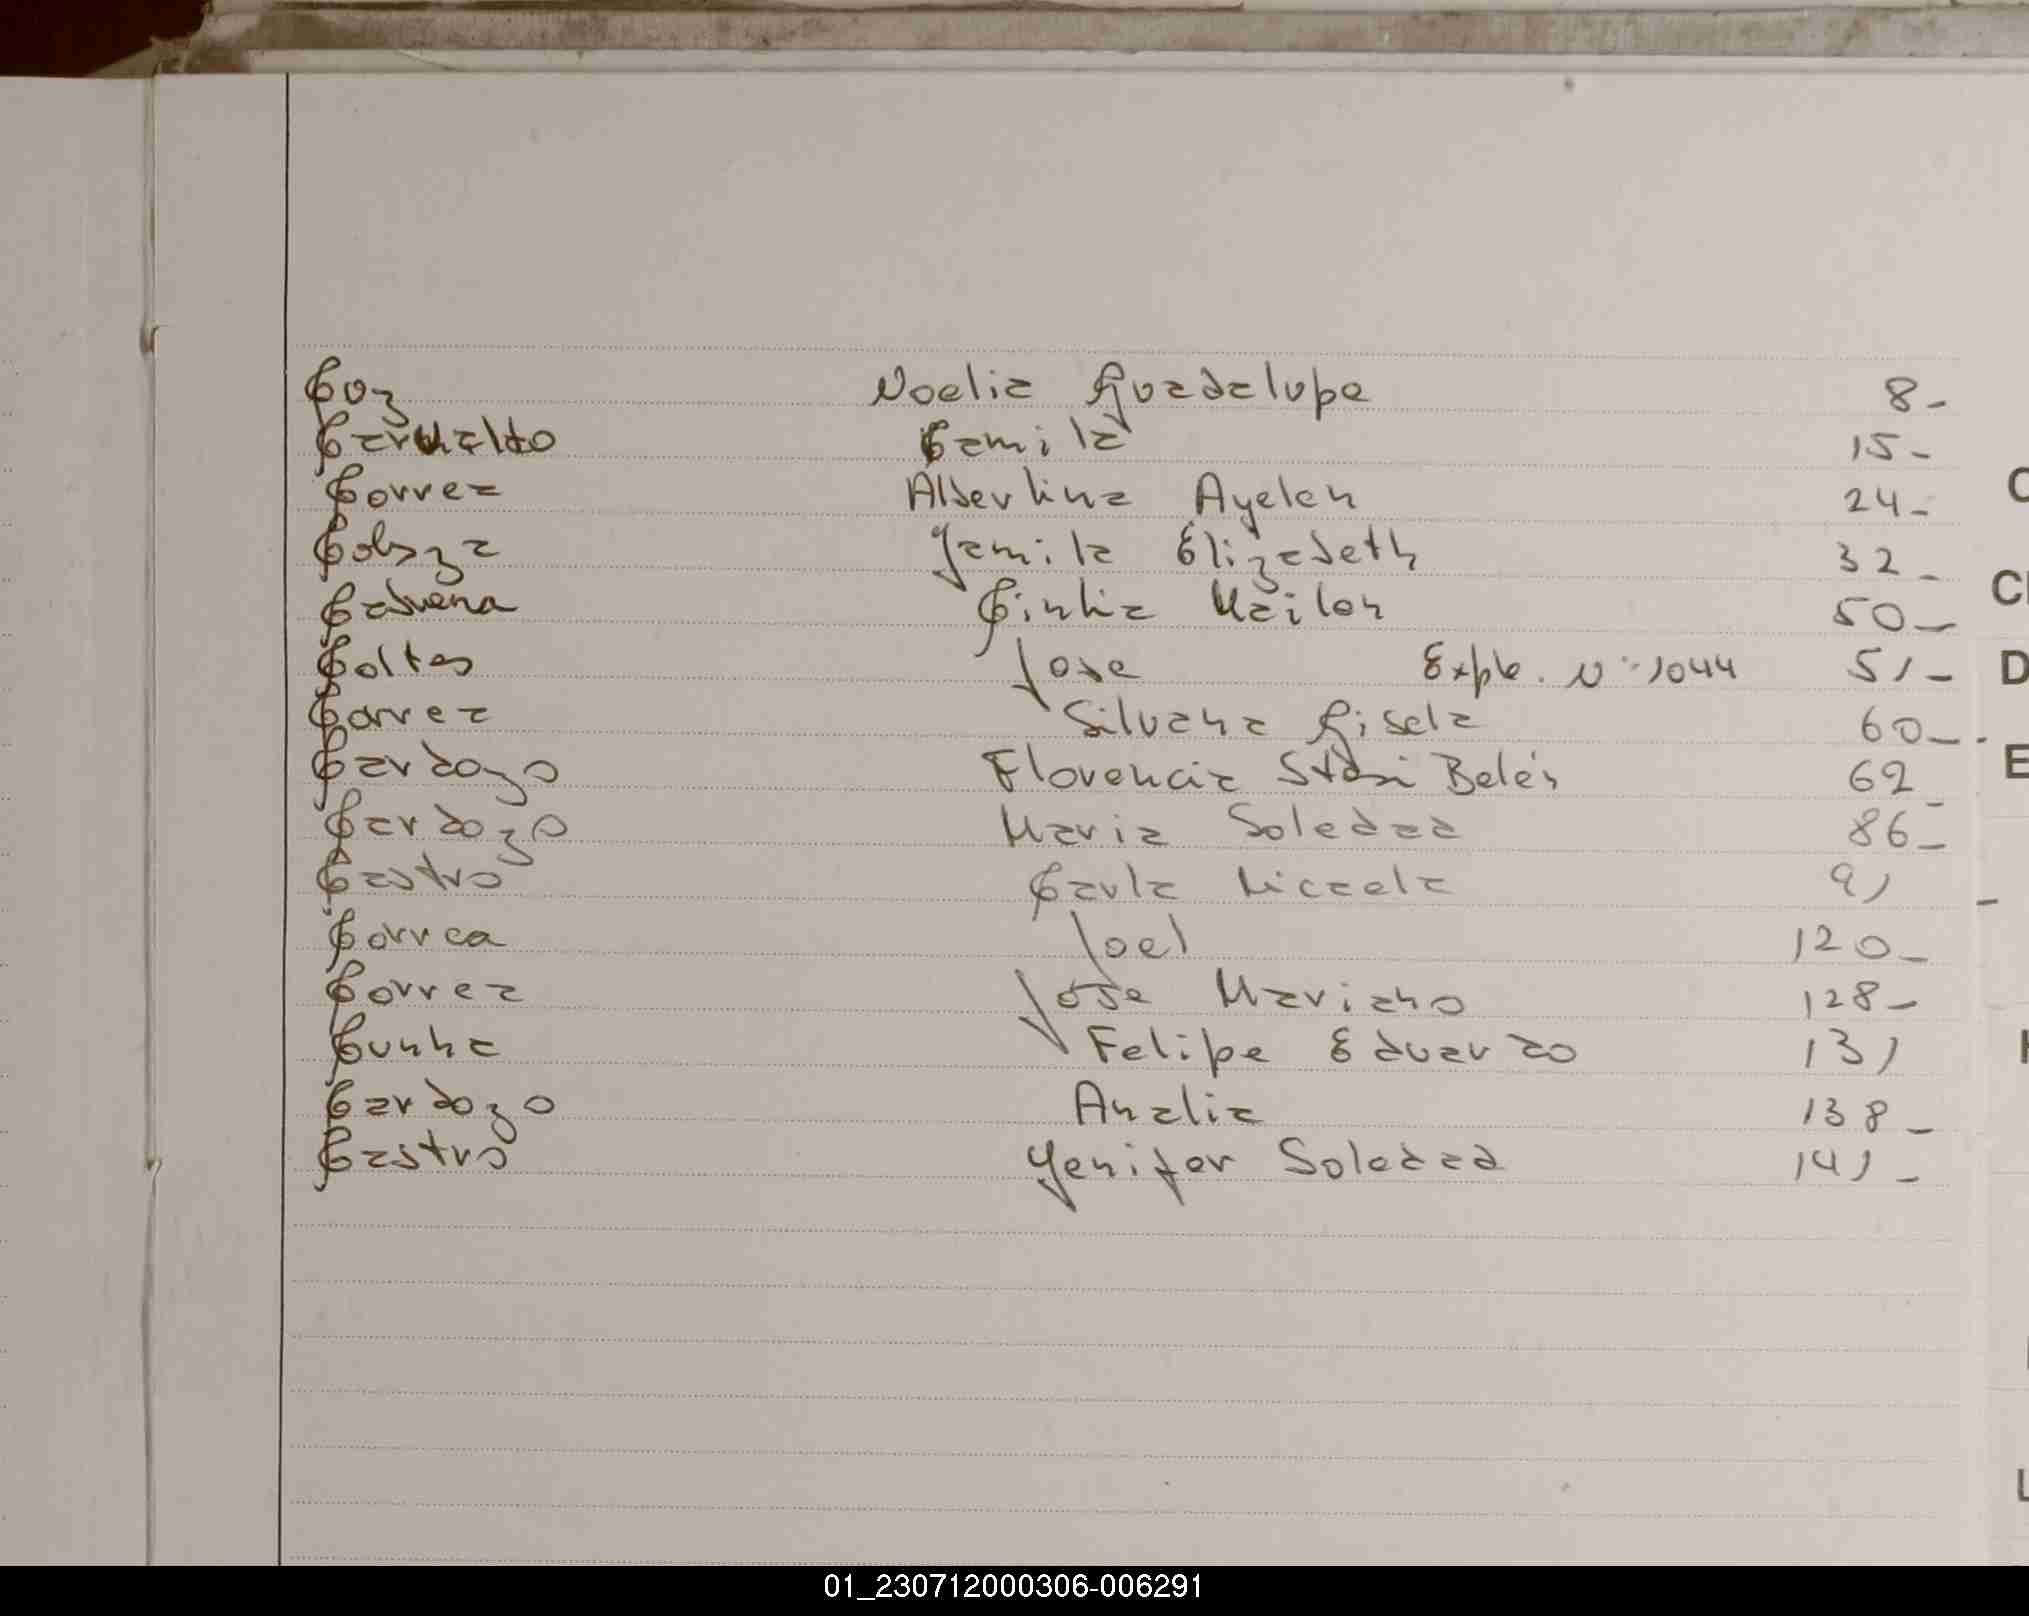 Coz Noelia Guadalupe 8-
Carvalho Camila 15-
Correa Albertina Ayelen 24-
C
Jamila Elizabeth 32-
Cintia Mailen 50-
Cl
Jose Exp. N° 1044 51-
D
Correa Silvana Gisela 60-
Cardozo Florencia Belén 62-
E
Cardozo Maria Soledad 86-
Castro Carla Micaela 91-
Correa Joel 120-
Correa Jose Mariano 128-
Cunha Felipe Eduardo 131
Cardozo Analia 138-
Castro Yenifer Soledad 141-
L
01_230712000306-006291